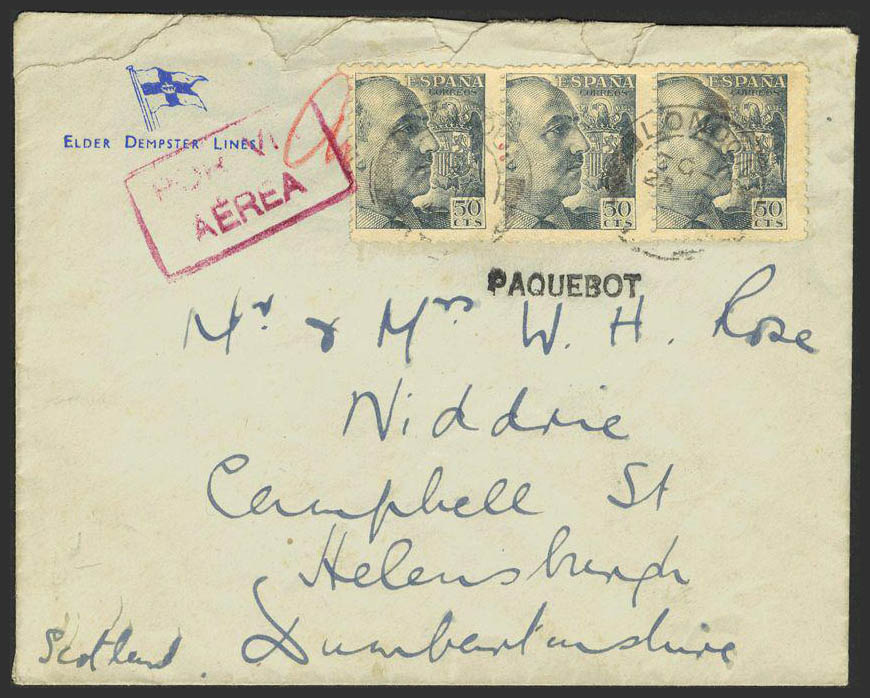 ELDER DEMPSTER LINES
POR VI
AÉREA
ESPAÑA
CORREOS
50
CTS
ESPAÑA
CORREOS
50
CTS
ESPAÑA
CORREOS
50
CTS
PAQUEBOT
Mr & Mrs W. H. Rose
Niddrie
Campbell St
Helensburgh
Dumbartonshire
Scotland.